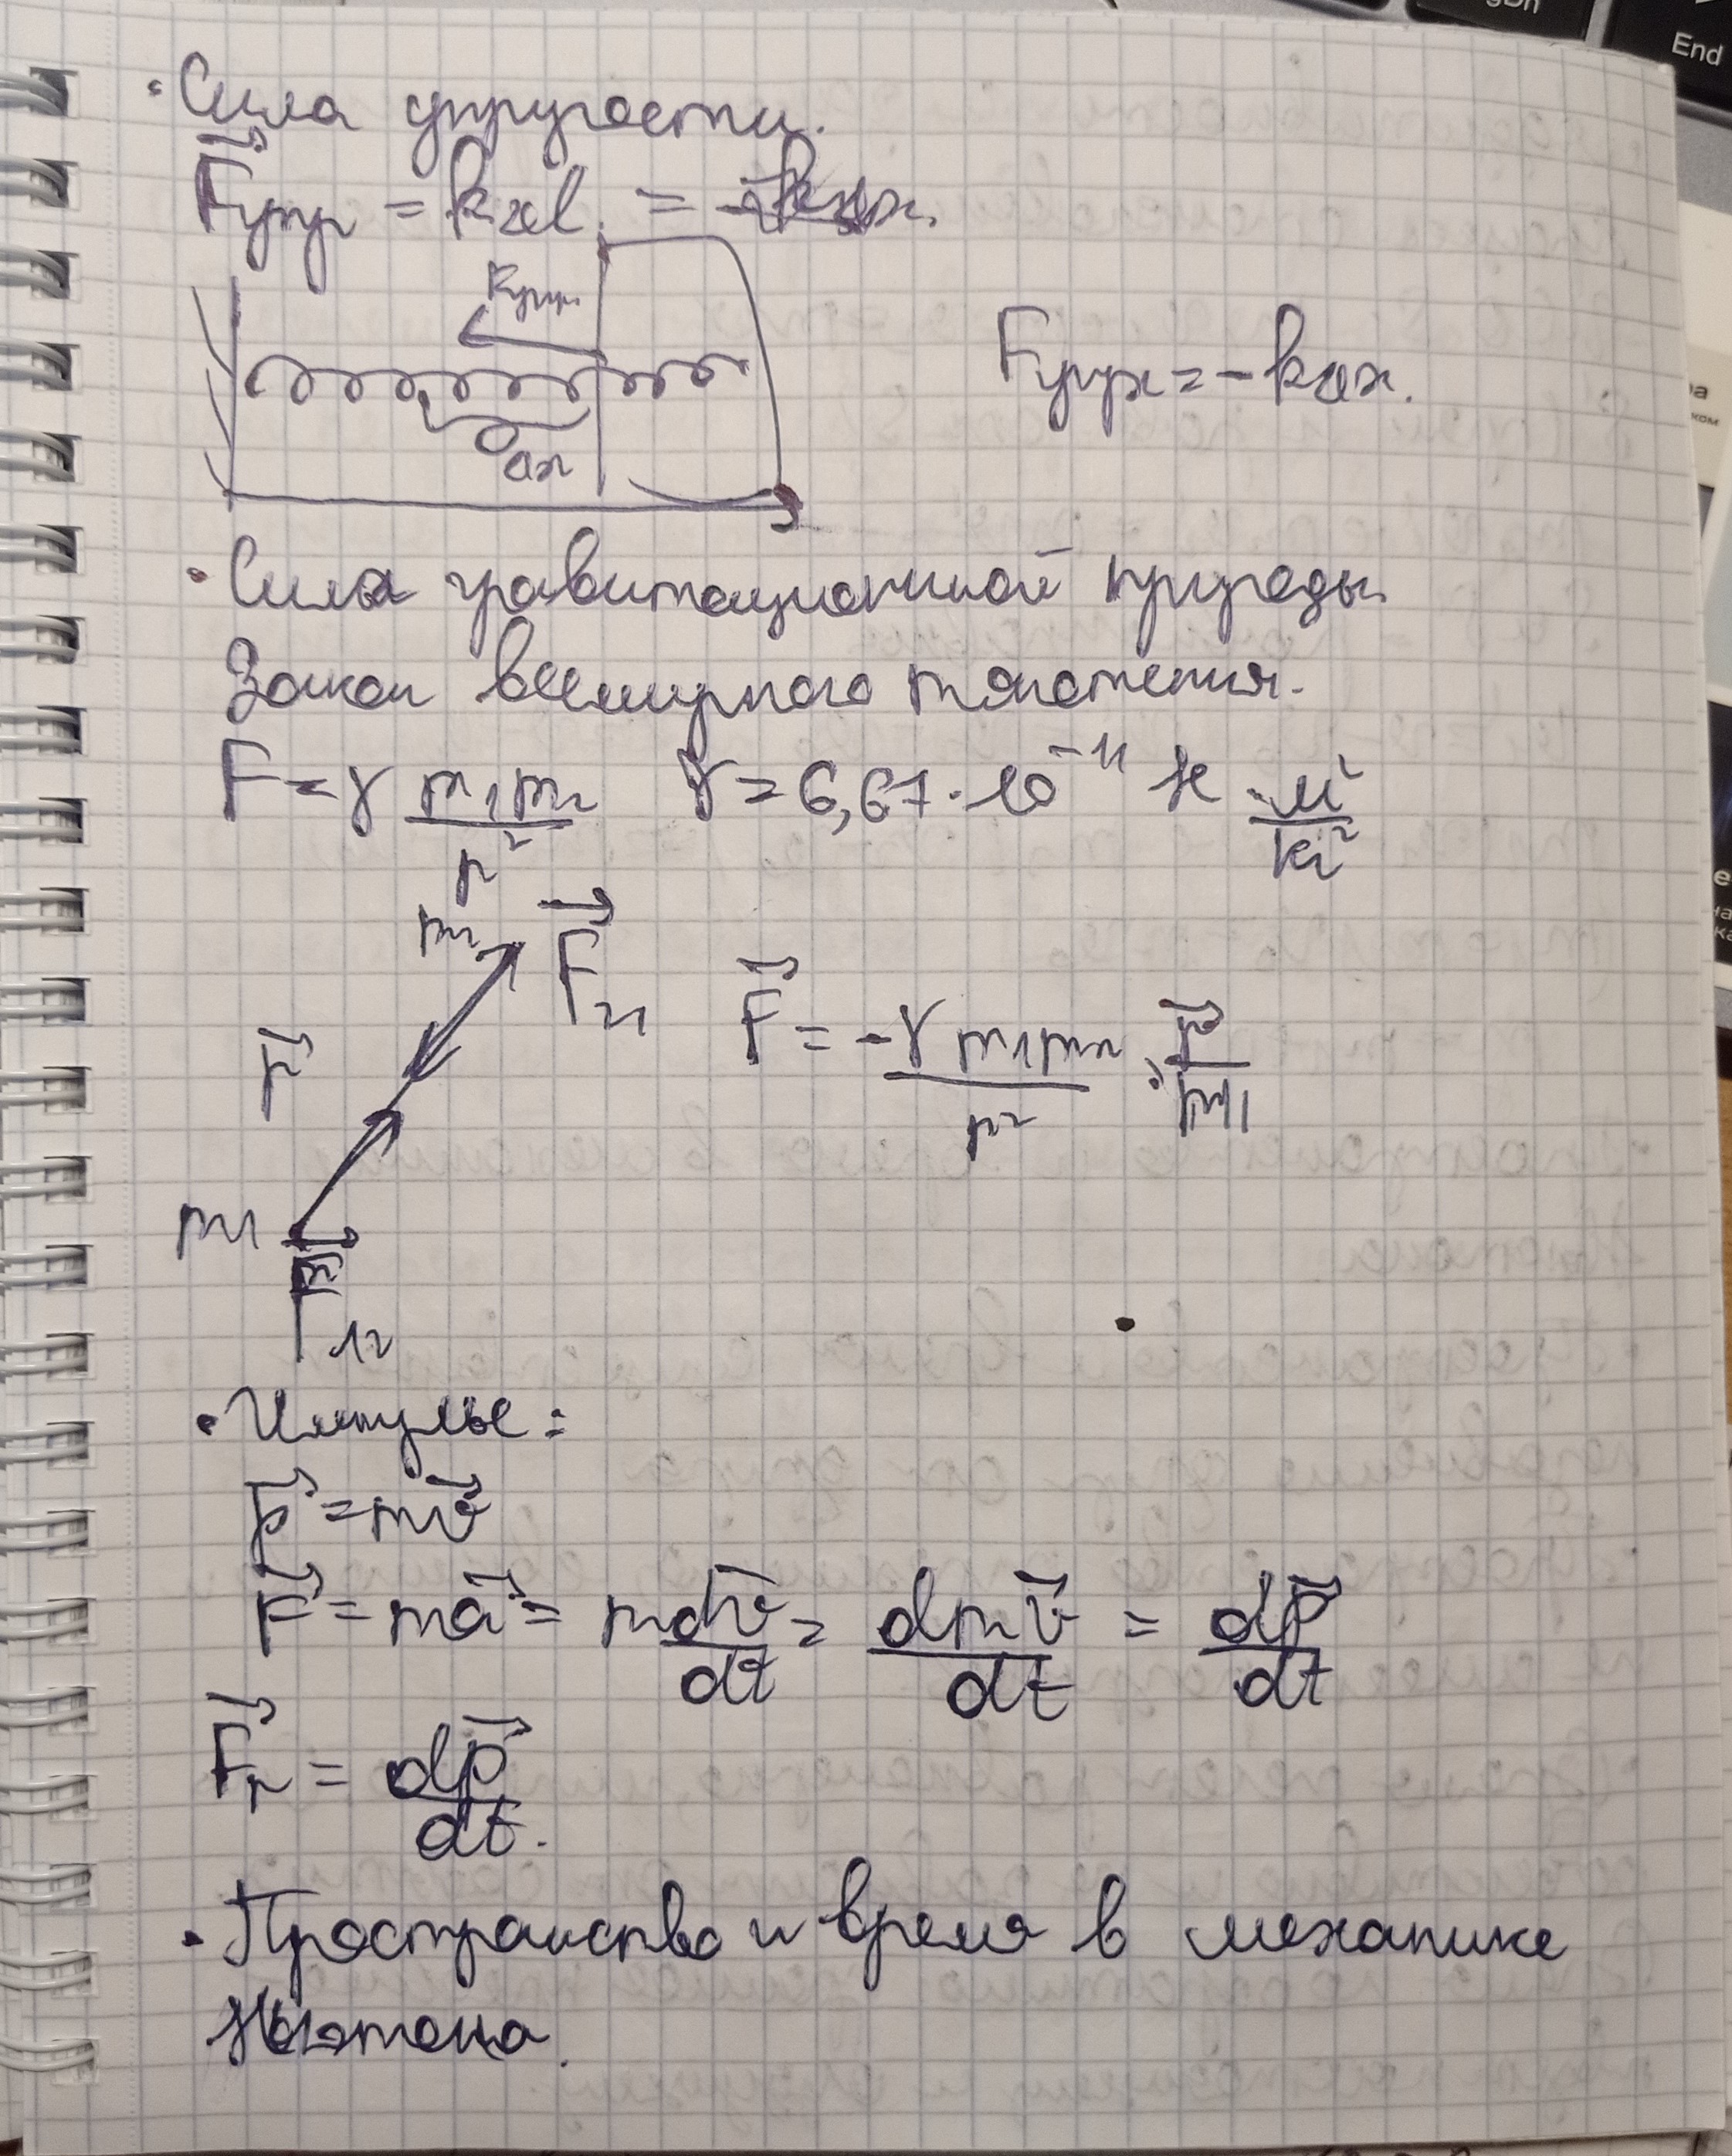 · Сила упругости.
F⃗упр = kΔl. =
Fупр.
Δx
Fупрx = -kΔx.
· Сила гравитационной природы
Закон всемирного тяготения.
F = γ m₁m₂/r² γ = 6,67·10⁻¹¹ Н · м²/кг²
m₂ F⃗₂₁
r⃗ F⃗ = -γ m₁m₂/r² · r⃗/|r|
m₁
F⃗₁₂
· Импульс:
p⃗ = mv⃗
F⃗ = ma⃗ = m dv⃗/dt = dmv⃗/dt = dp⃗/dt
F⃗r = dp⃗/dt.
· Пространство и время в механике
Ньютона.
End